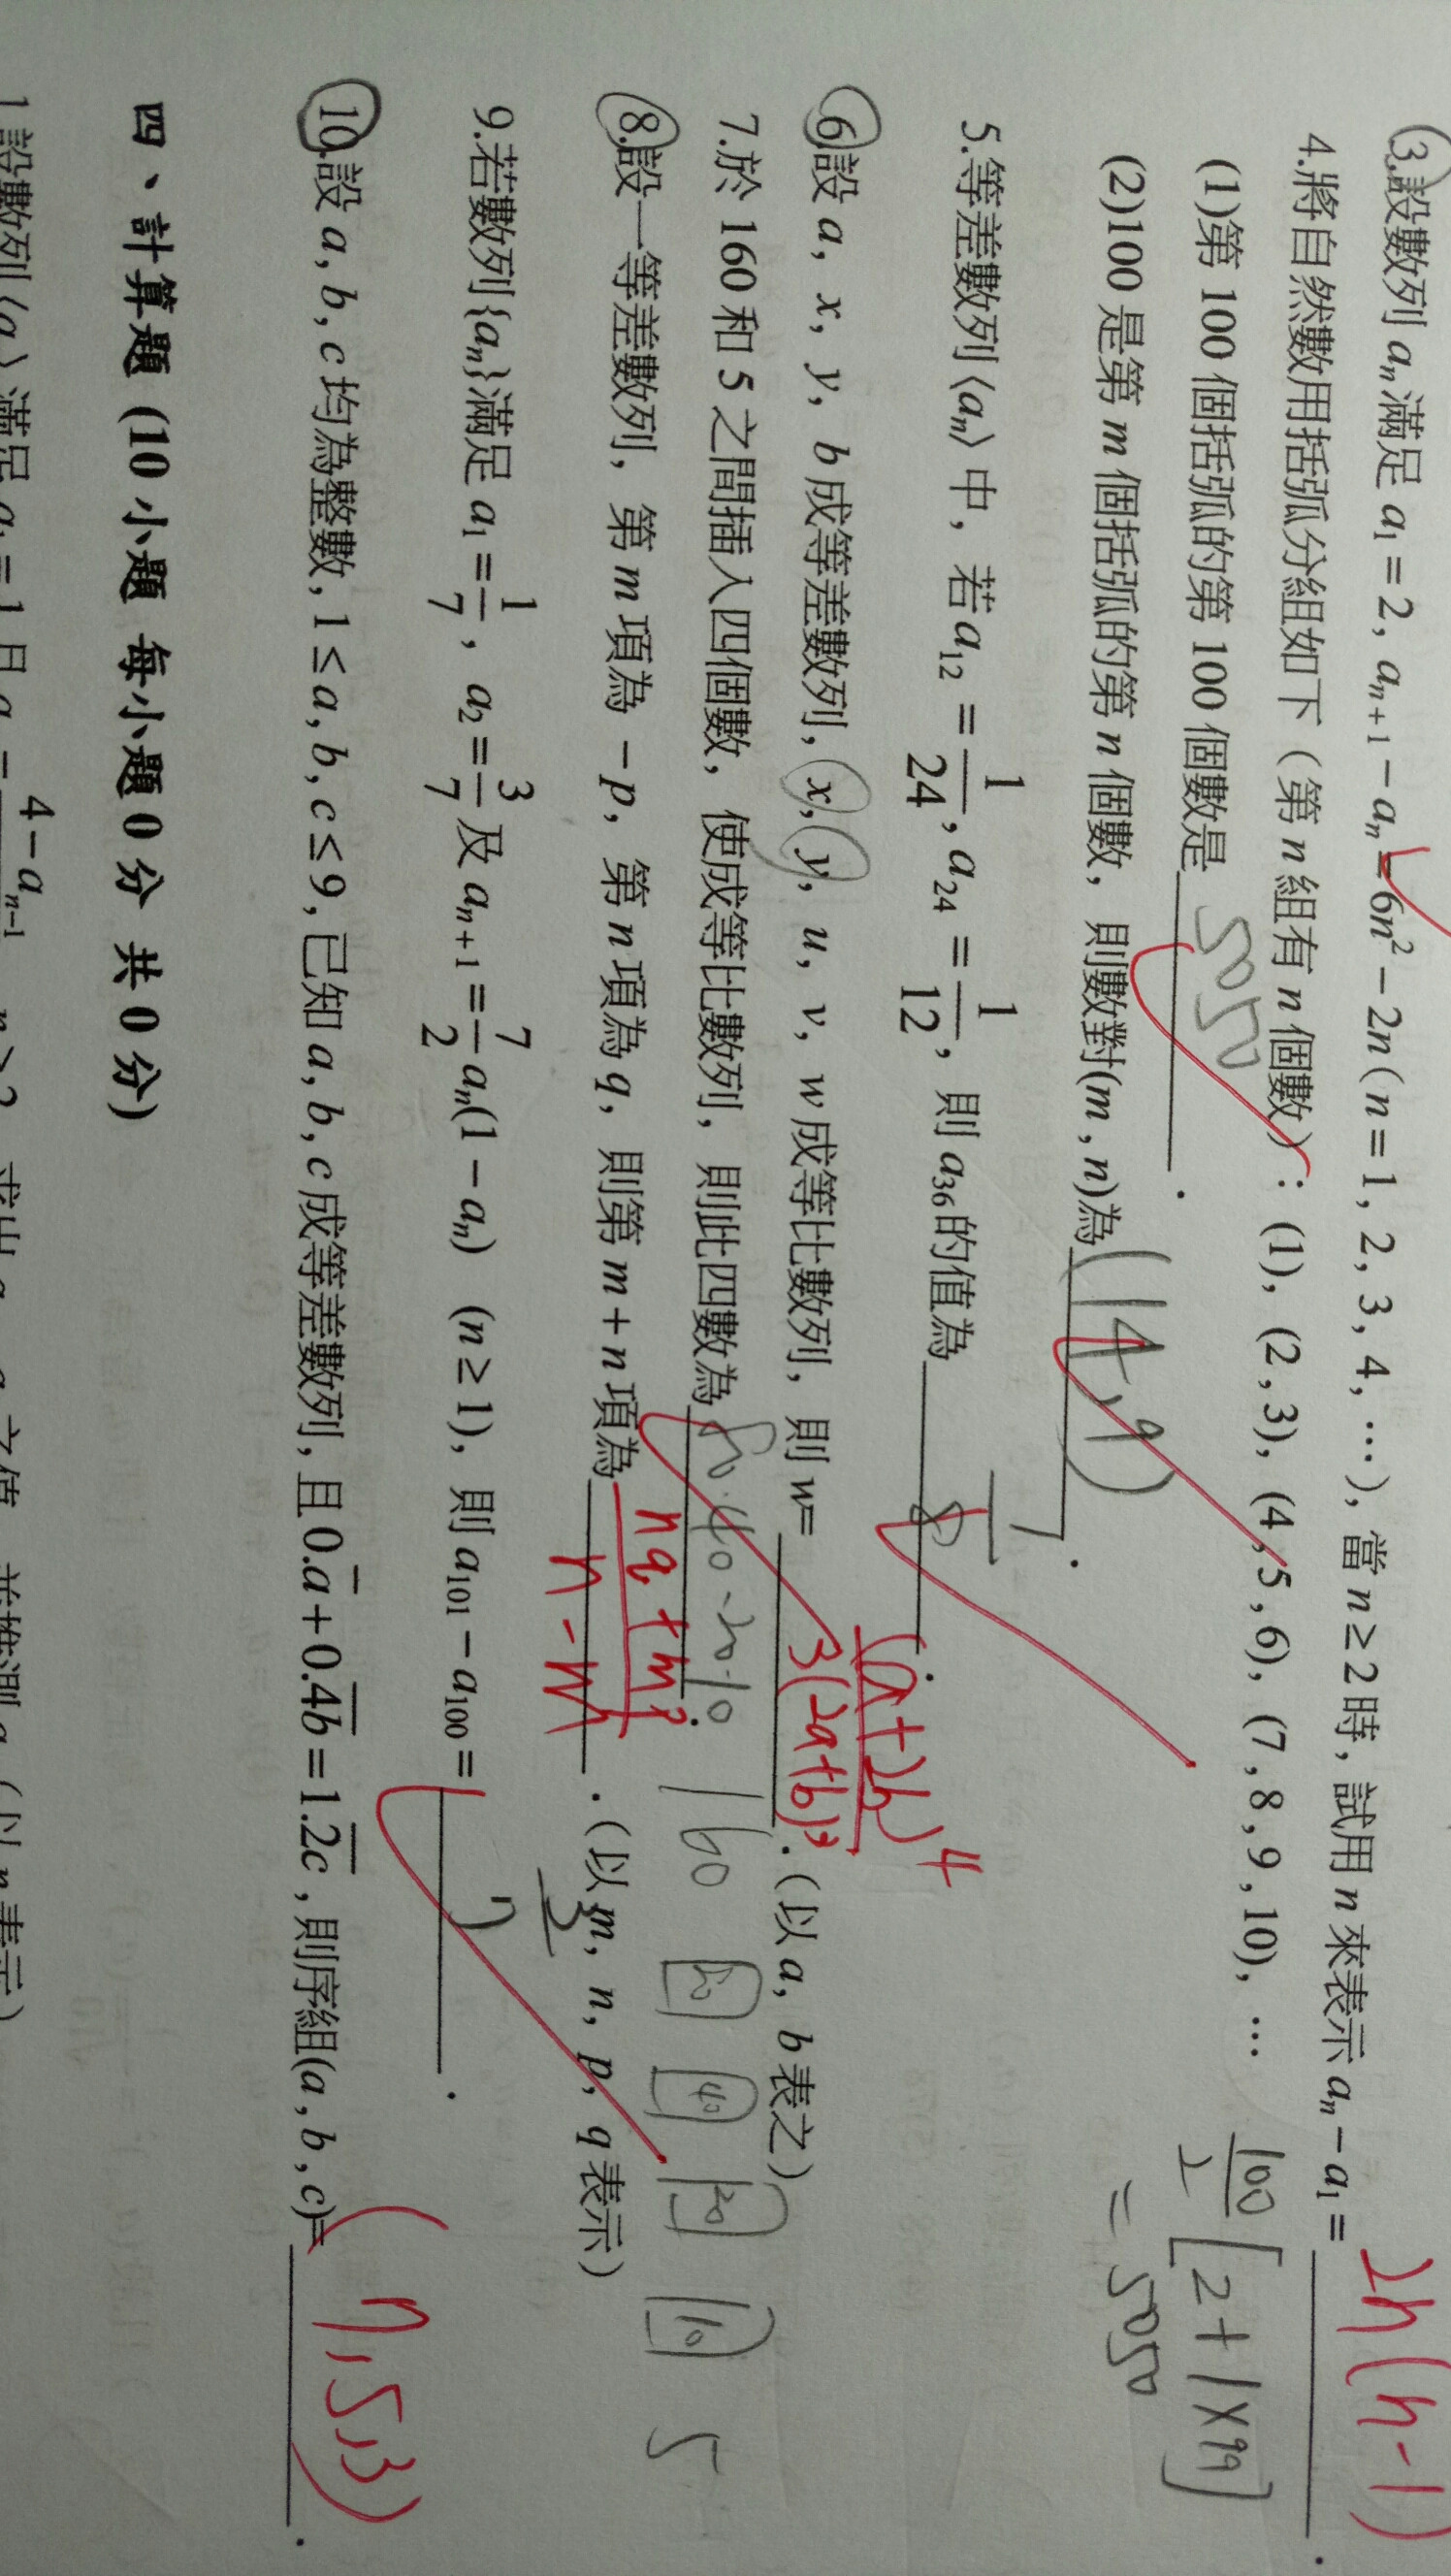 3.設數列 aₙ 滿足 a₁ = 2, aₙ₊₁ − aₙ = 6n² − 2n (n = 1, 2, 3, 4, …), 當 n ≥ 2 時, 試用 n 來表示 aₙ − a₁ = 2n(n-1)
4.將自然數用括弧分組如下（第 n 組有 n 個數）: (1), (2, 3), (4, 5, 6), (7, 8, 9, 10), …
(1)第 100 個括弧的第 100 個數是 5050 .
100/2 [2+1×99]
= 5050
(2)100 是第 m 個括弧的第 n 個數, 則數對(m, n)為 (14,9) .
5.等差數列 ⟨aₙ⟩ 中, 若 a₁₂ = 1/24, a₂₄ = 1/12, 則 a₃₆ 的值為 1/8 .
6.設 a, x, y, b 成等差數列, x, y, u, v, w 成等比數列, 則 w= (a+2b)⁴/3(2a+b)³ .（以 a, b 表之）
7.於 160 和 5 之間插入四個數, 使成等比數列, 則此四數為 80.40.20.10 .
160 80 40 20 10 5
8.設一等差數列, 第 m 項為 − p, 第 n 項為 q, 則第 m + n 項為 nq+mp/n-m .（以 m, n, p, q 表示）
9.若數列{aₙ}滿足 a₁ = 1/7, a₂ = 3/7 及 aₙ₊₁ = 7/2 aₙ(1 − aₙ) (n ≥ 1), 則 a₁₀₁ − a₁₀₀ = .
10.設 a, b, c 均為整數, 1 ≤ a, b, c ≤ 9, 已知 a, b, c 成等差數列, 且 0.a̅ + 0.4̅b̅ = 1.2̅c̅, 則序組(a, b, c)= (7,5,3) .
四、計算題 (10 小題 每小題 0 分 共 0 分)